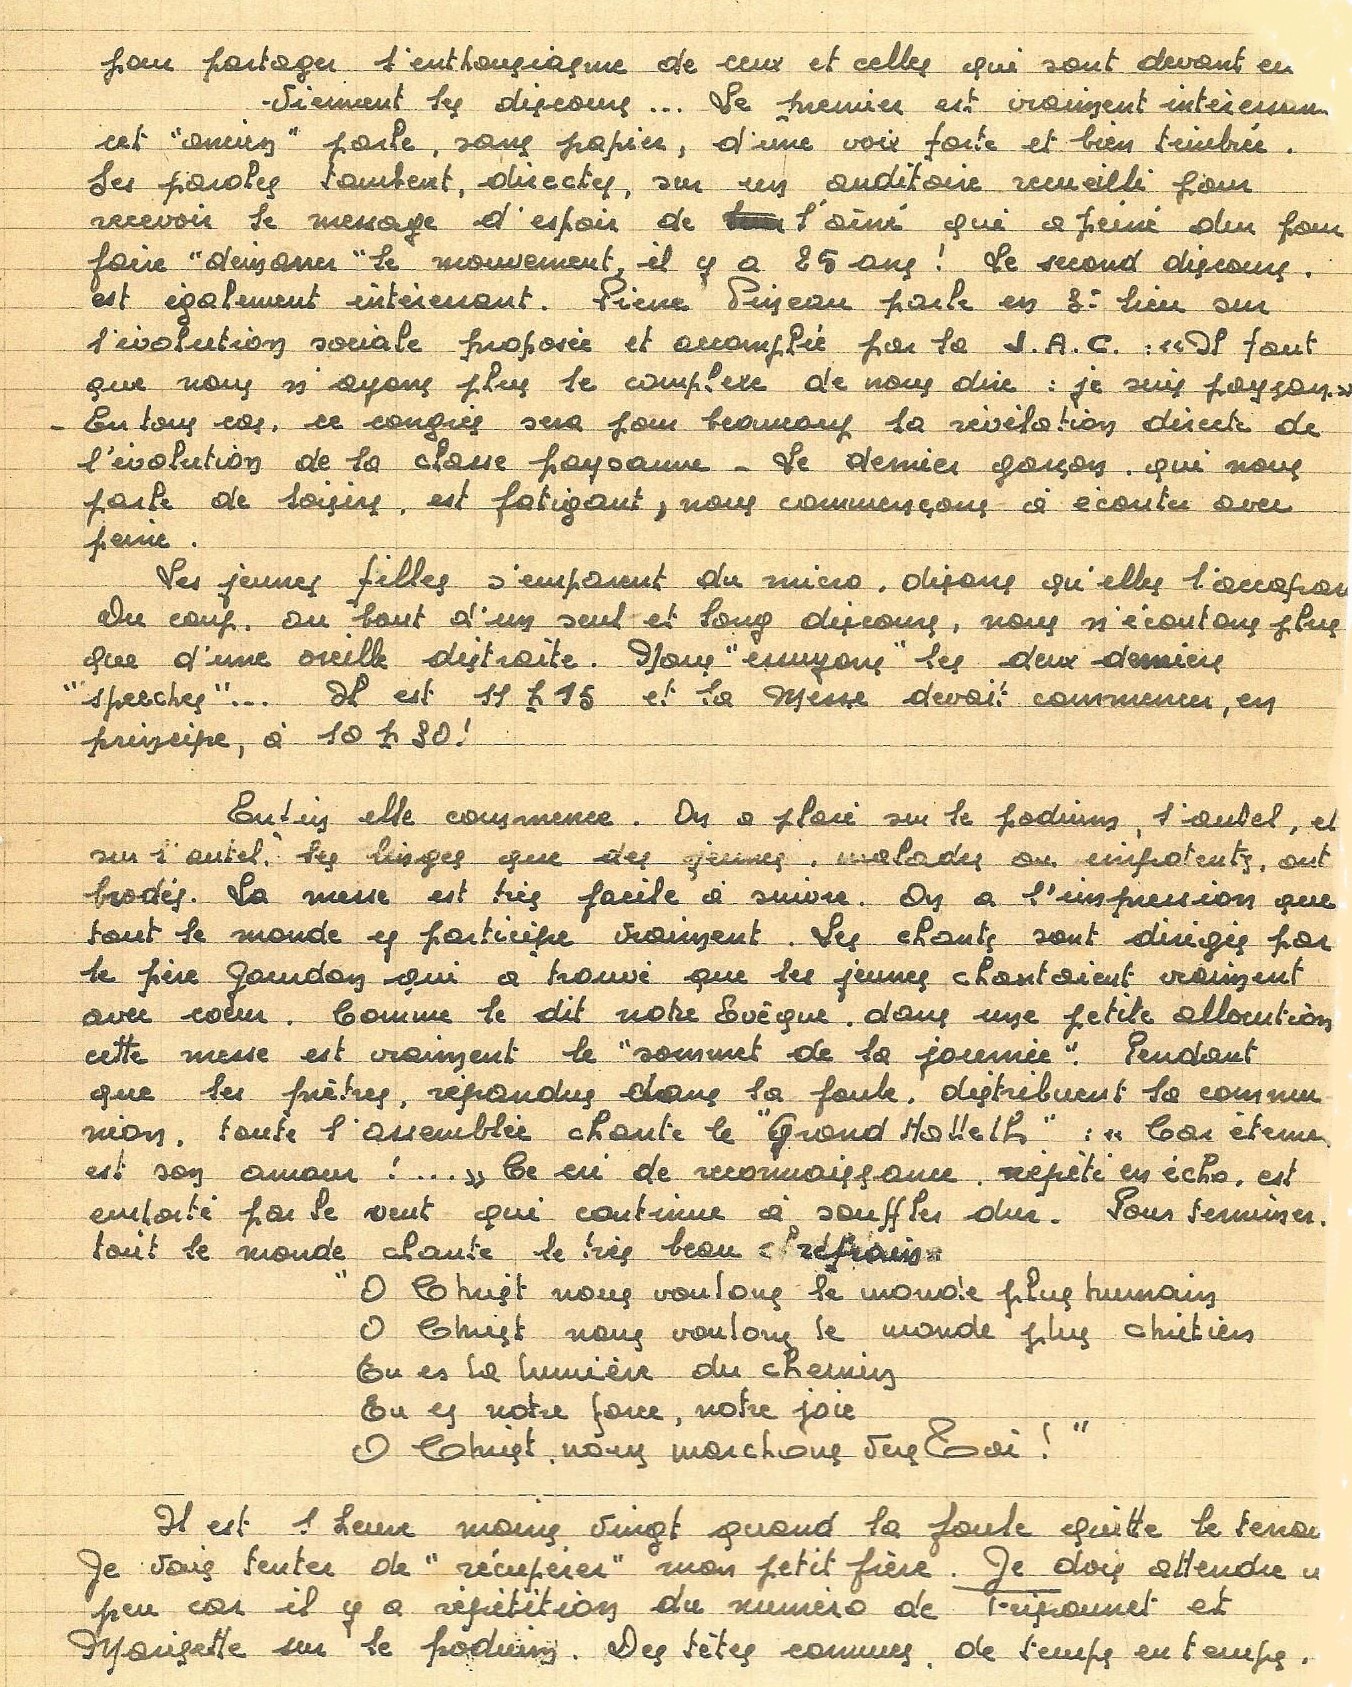 pour partager l'enthousiasme de ceux et celles qui sont devant eu
-Viennent les discours ... Le premier est vraiment intéressan
cet "ancien" parle, sans papier, d'une voix forte et bien timbrée.
Les paroles tombent, directes, sur un auditoire recueilli pour
recevoir le message d'espoir de l'aîné qui a peiné dur pour
faire "démarrer" le mouvement, il y a 25 ans ! Le second discours.
est également intéressant. Pierre Pineau parle en 3e lieu sur
l'évolution sociale proposée et accomplie par la J.A.C. : «Il faut
que nous n'ayons plus le complexe de nous dire : je suis paysan.»
- En tous cas, ce congrès sera pour beaucoup la révélation directe de
l'évolution de la classe paysanne - Le dernier garçon, qui nous
parle de loisirs, est fatigant, nous commençons à écouter avec
peine.
Les jeunes filles s'emparent du micro, disons qu'elles l'accapar
Du coup, au bout d'un seul et long discours, nous n'écoutons plus
que d'une oreille distraite. Nous "essuyons" les deux derniers
"speeches"... Il est 11 h 15 et la Messe devait commencer, en
principe, à 10 h 30!
Enfin elle commence. On a placé sur le podium, l'autel, et
sur l'autel, les linges que des jeunes, malades ou impotents, ont
brodés. La messe est très facile à suivre. On a l'impression que
tout le monde y participe vraiment. Les chants sont dirigés par
le père Jourdan qui a trouvé que les jeunes chantaient vraiment
avec coeur. Comme le dit notre Evêque, dans une petite allocution
cette messe est vraiment le "sommet de la journée". Pendant
que les prêtres, répandus dans la foule, distribuent la commu
nion, toute l'assemblée chante le "Grand Halleth" : « Car éterne
est son amour ! ...» Ce cri de reconnaissance, répété en écho, est
emporté par le vent qui continue à souffler dur. Pour terminer,
tout le monde chante le très beau refrain
"O Christ nous voulons le monde plus humain
O Christ nous voulons le monde plus chrétien
Tu es la lumière du chemin
Tu es notre force, notre joie
O Christ, nous marchons vers Toi ! "
Il est 1 heure moins vingt quand la foule quitte le terrai
Je vais tenter de "récupérer" mon petit frère. Je dois attendre u
peu car il y a répétition du numéro de Frisounet et
Marisette sur le podium. Des têtes connues, de temps en temps,